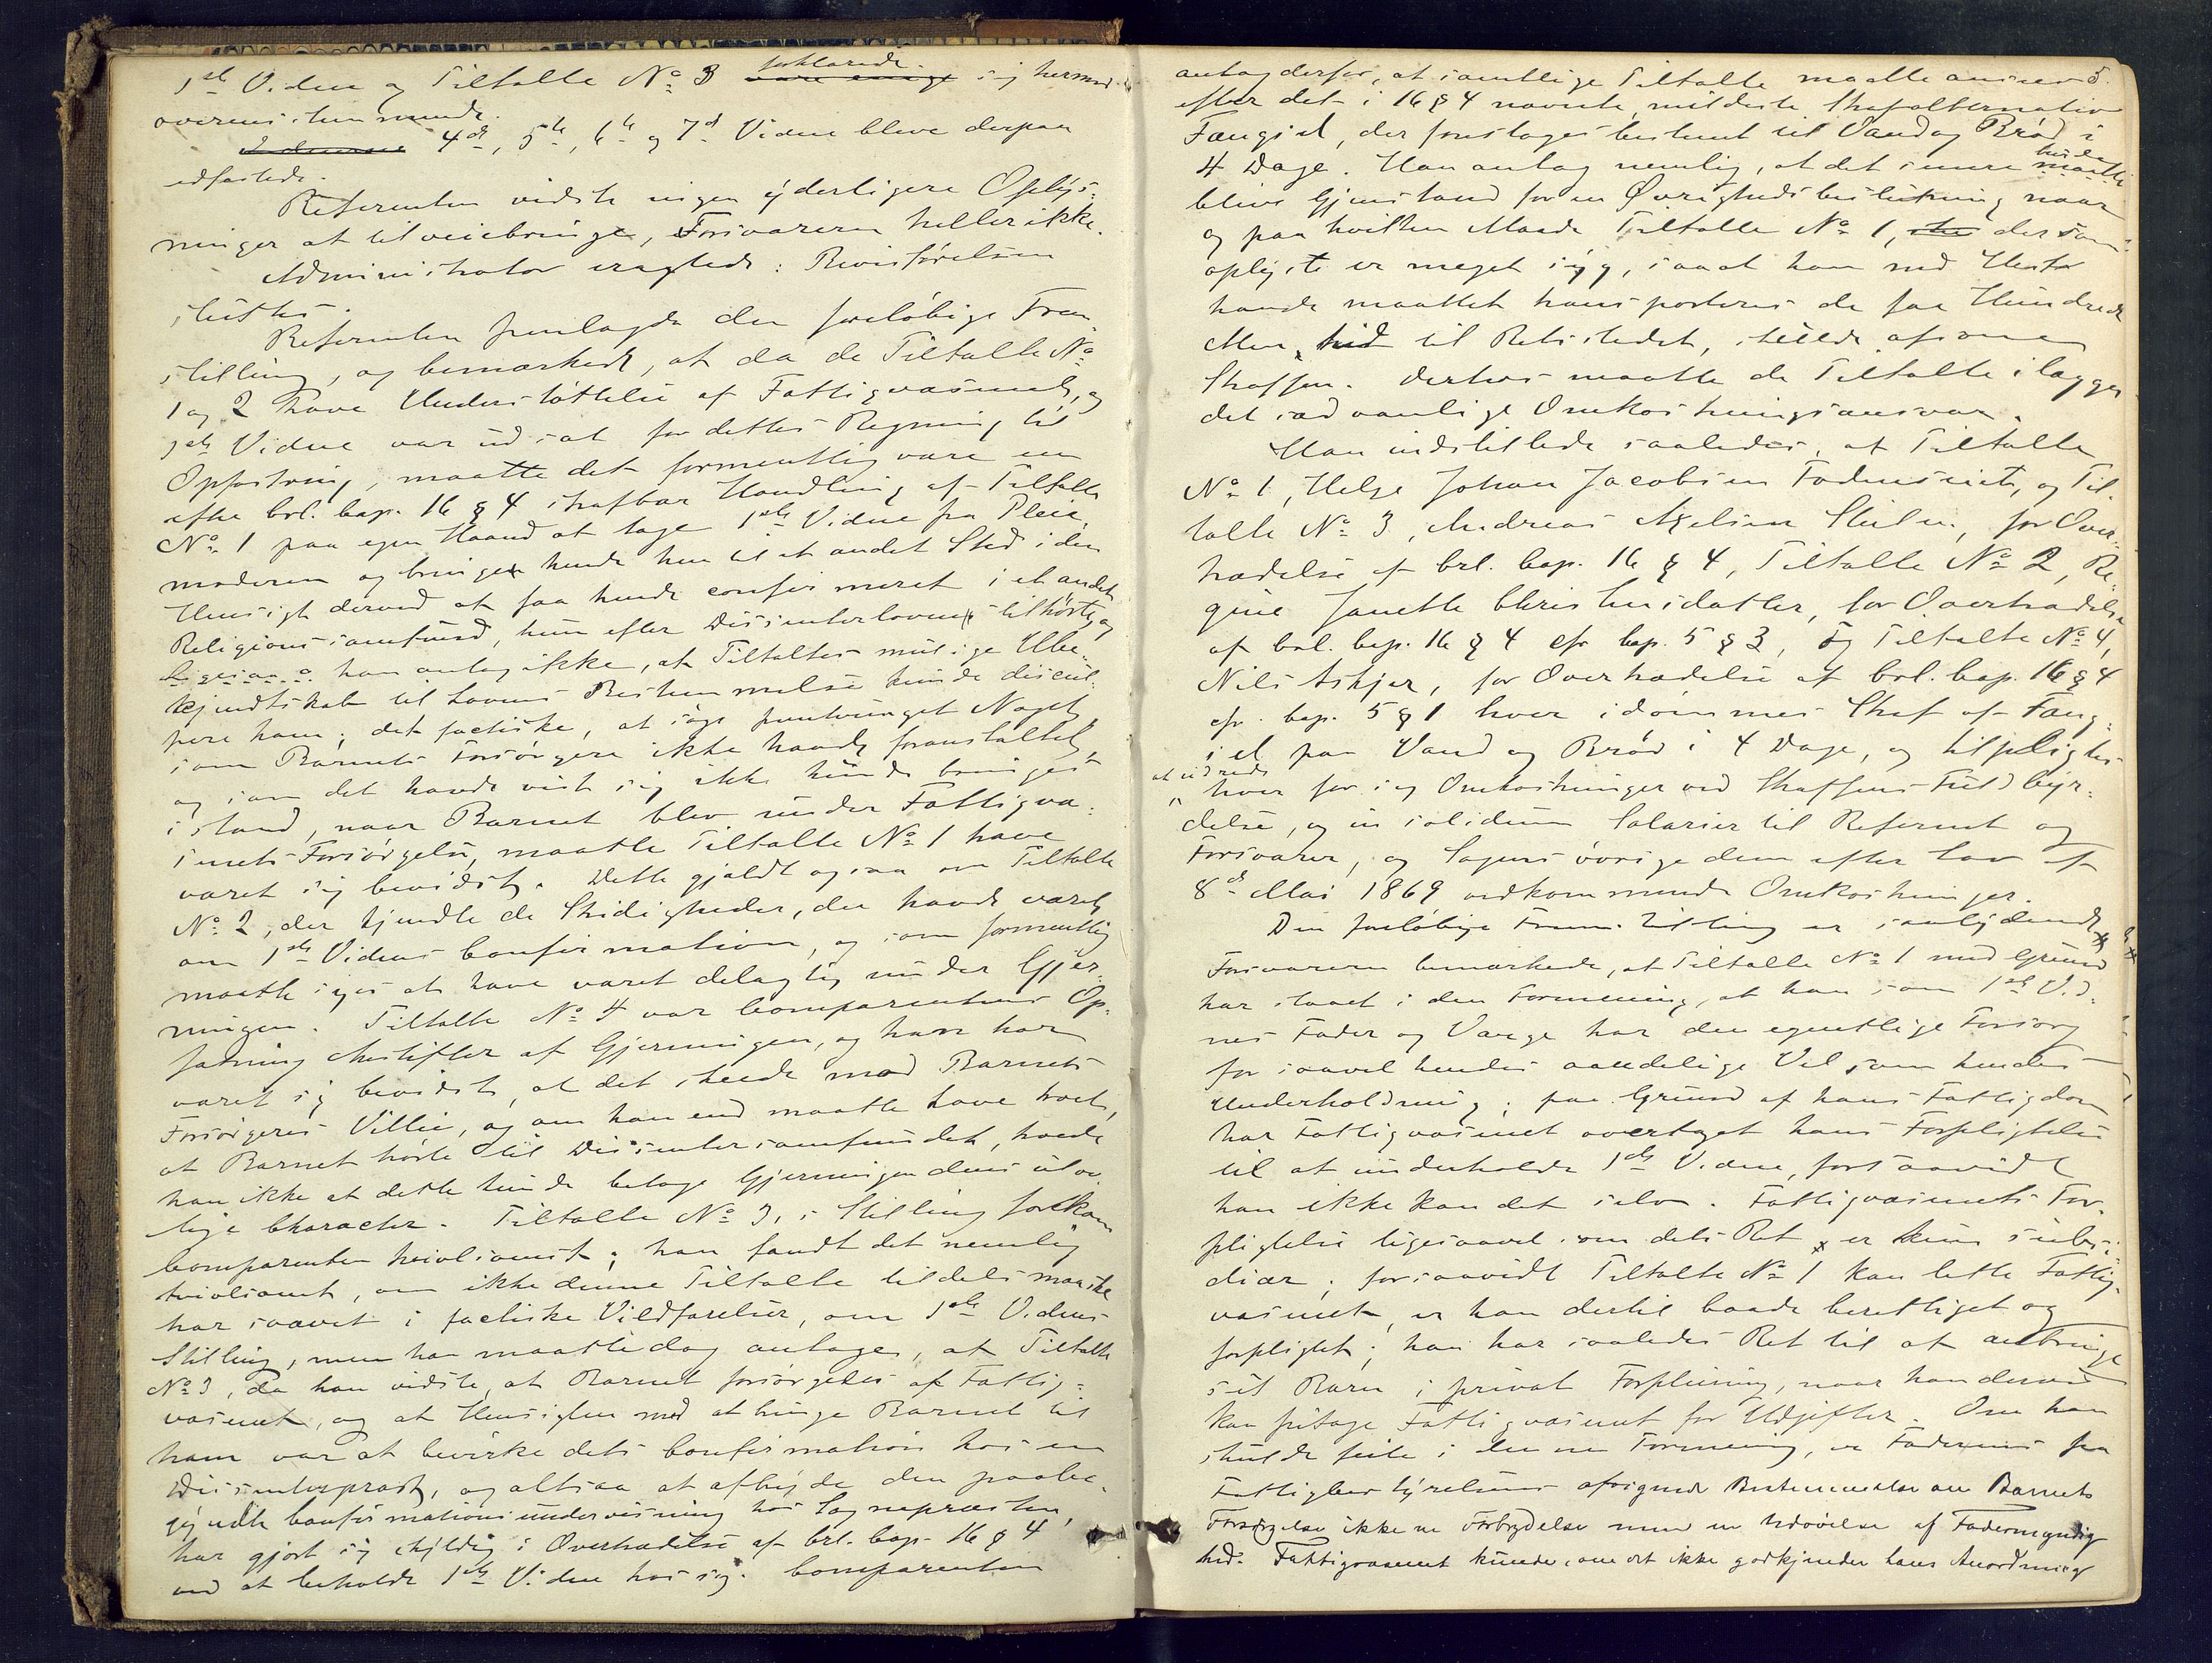 1ste Vidne og Tiltalte No 3 vare enige forklarede sig hermed
overensstemmende.
4de, 5te, 6te og 7de Vidne bleve derpaa
edfæstede.
Referenten vidste ingen yderligere Oplys-
ninger at tilveiebringe, Forsvareren heller ikke.
Administrator eragtede: Bevisførelsen
sluttes.
Referenten fremlagde den foreløbige Frem-
stilling, og bemærkede, at da de Tiltalte No
1 og 2 have Understøttelse af Fattigvæsenet, og
1ste Vidne var udsat for dettes Regning til
Opfostring, maatte det formentlig være en
efter Crl. Cap. 16 § 4 strafbar Handling af Tiltalte
No 1 paa egen Haand at tage 1ste Vidne fra Pleie-
moderen og bringe hende hen til et andet Sted i den
Hensigt derved at faa hende confirmeret i et andet
Religionssamfund, hun efter Dissenterloven tilhørte, og
han antog ikke, at Tiltaltes mulige Ube-
kjendtskab til Lovens Bestemmelse kunde discul-
pere ham; det factiske, at søge fremtvunget Noget,
som Barnets Forsørgere ikke havde foranstaltet,
og som det havde vist sig ikke kunde bringes
istand, naar Barnet blev under Fattigvæ-
senets Forsørgelse, maatte Tiltalte No 1 have
været sig bevidst. Dette gjaldt ogsaa om Tiltalte
No 2, der kjendte de Stridigheder, der havde været
om 1ste Vidnes Confirmation, og som formentlig
maatte siges at have været delagtig under Gjer-
ningen. Tiltalte No 4 var Comparentens Op-
fatning Anstifter af Gjerningen, og han har
været sig bevidst, at det skeede mod Barnets
Forsørgeres Villie, og om han end maatte have troet,
at Barnet hørte til Dissentersamfundet, troede
han ikke at dette kunde betage Gjerningen dens ulov-
lige Character. Tiltalte No 3's Stilling forekom
Comparenten tvivlsomst; han fandt det nemlig
tvivlsomt, om ikke denne Tiltalte tildels maaske
har svævet i factiske Vildfarelser, om 1ste Vidnes
Stilling, men han maatte dog antage, at Tiltalte
No 3, da han vidste, at Barnet forsørgedes af Fattig-
væsenet, og at Hensigten med at bringe Barnet til
ham var at bevirke dets Confirmation hos en
Dissenterprest, og altsaa at afbryde den paabe-
gyndte Confirmationsundervisning hos Sognepresten,
har gjort sig skyldig i Overtrædelse af Crl. Cap. 16 § 4
ved at beholde 1ste Vidne hos sig. Comparenten
5.
antog derfor, at samtlige Tiltalte maatte ansees
efter det i 16 § 4 nævnte mildeste Strafalternativ
Fængsel, der foresloges bestemt til Vand og Brød i
4 Dage. Han antog nemlig, at det senere burde maatte
blive Gjenstand for en Øvrighedsbeslutning naar
og paa hvilken Maade Tiltalte No 1, der som
oplyst er meget syg, saa at han med Heste
havde maattet transporteres de faa Hundrede
Alen hid til Retsstedet, skulde afsone
Straffen. Derhos maatte de Tiltalte ilægges
det sædvanlige Omkostningsansvar.
Han indstillede saaledes, at Tiltalte
No 1, Helge Johan Jacobsen Fodneseit, og Til-
talte No 3, Andreas Axelsen Skilen, for Over-
trædelse af Crl. Cap. 16 § 4, Tiltalte No 2, Re-
gine Janette Christensdatter, for Overtrædelse
af Crl. Cap. 16 § 4 cfr Cap. 5 § 3, og Tiltalte No 4,
Nils Askjer, for Overtrædelse af Crl. Cap. 16 § 4
cfr. Cap. 5 § 1 hver idømmes Straf af Fæng-
sel paa Vand og Brød i 4 Dage, og tilpligtes
at udrede
hver for sig Omkostninger ved Straffens Fuldbyr-
delse, og in solidum Salarier til Referent og
Forsvarer, og Sagens øvrige dem efter Lov af
8de Mai 1869 vedkommende Omkostninger.
Den foreløbige Fremstilling er saalydende
Forsvareren bemærkede, at Tiltalte No 1 med Grund
har staaet i den Formening, at han som 1ste Vid-
nes Fader og Værge har den egentlige Forsorg
for saavel hendes aandelige Vel som hendes
Underholdning; paa Grund af hans Fattigdom
har Fattigvæsenet overtaget hans Forpligtelse
til at underholde 1ste Vidne, forsaavidt
han ikke kan det selv. Fattigvæsenets For-
pligtelse ligesaavel som dets Ret er kun subsi-
diær; forsaavidt Tiltalte No 1 kan lette Fattig-
væsenet, er han dertil baade berettiget og
forpligtet; han har saaledes Ret til at anbringe
sit Barn i privat Forpleining, naar han derved
kan fritage Fattigvæsenet for Udgifter. Om han
skulde feile i denne Formening, er Faderens fra
Fattigbestyrelsens afvigende Bestemmelse om Barnets
Forsørgelse ikke en Forbrydelse men en Udøvelse af Fadermyndig
hed. Fattigvæsenet kunde, om det ikke godkjender hans Anordning